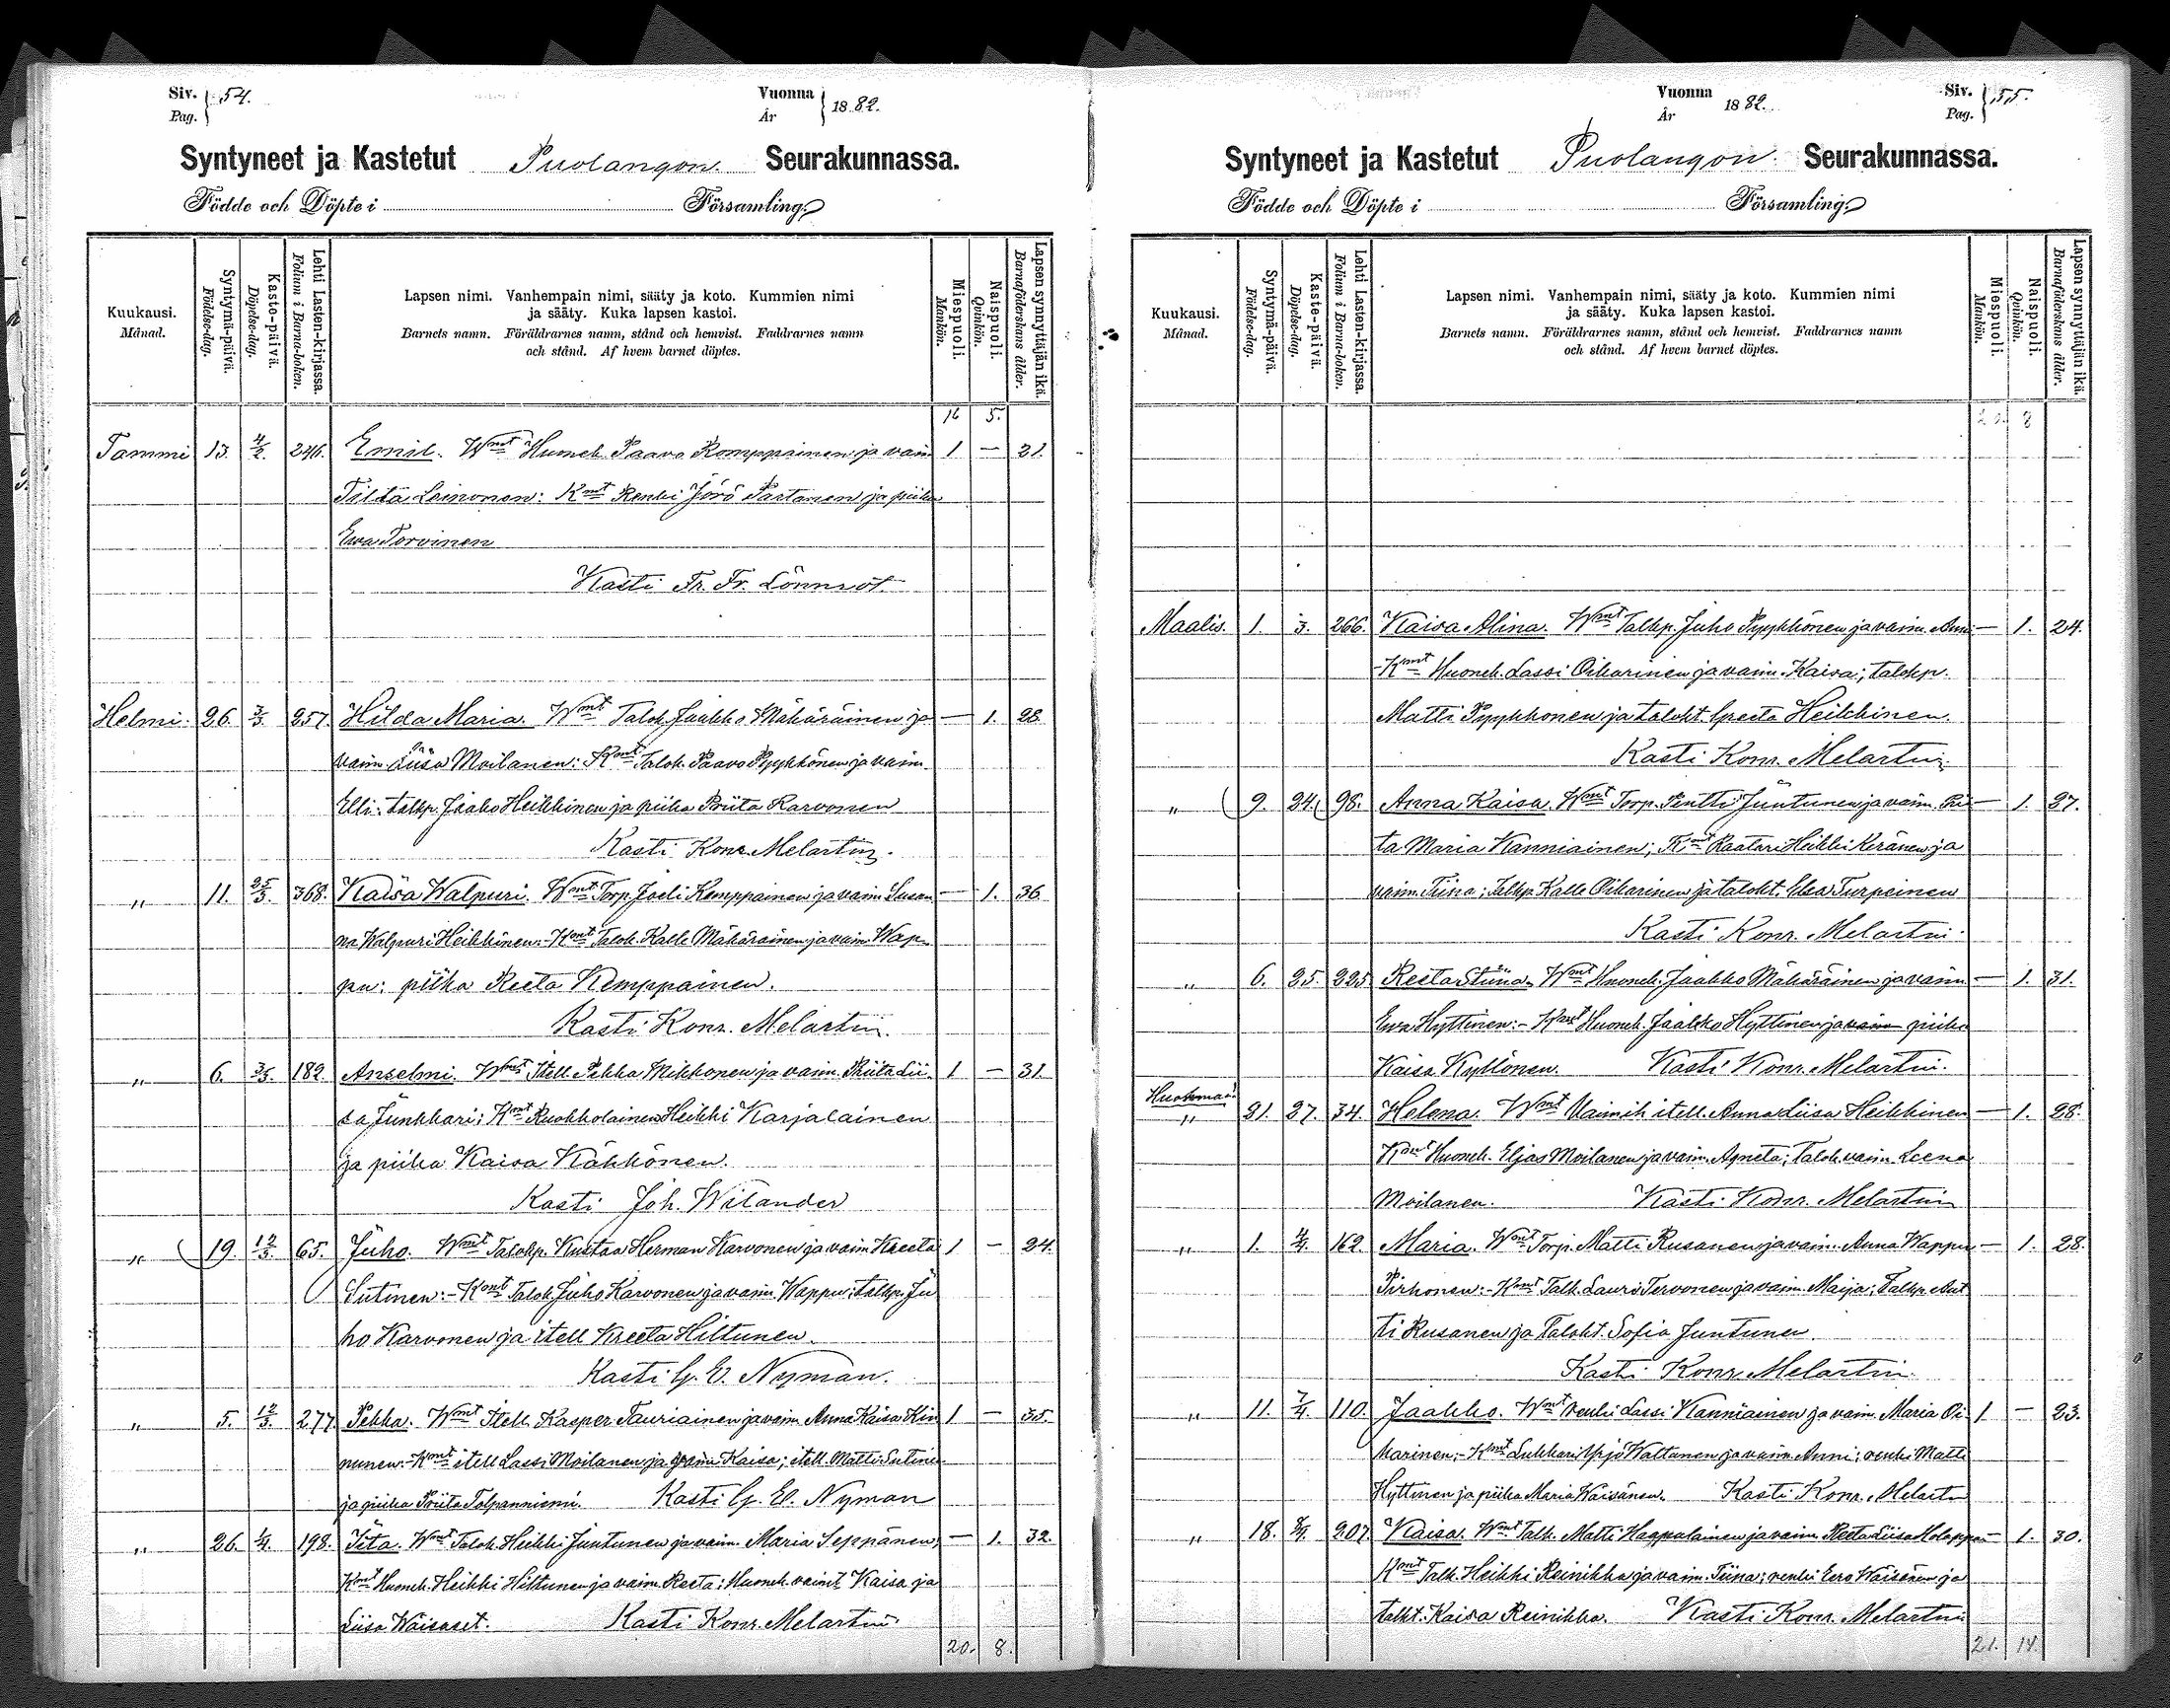 Siv. 54.
Pag.
Vuonna 1882.
År
Syntyneet ja Kastetut Puolangon Seurakunnassa.
Födde och Döpte i Församling.
Kuukausi.
Månad.
Syntymä-päivä.
Födelse-dag.
Kaste-päivä.
Döpelse-dag.
Lehti Lasten-kirjassa.
Folium i Barna-boken.
Lapsen nimi. Vanhempain nimi, sääty ja koto. Kummien nimi
ja sääty. Kuka lapsen kastoi.
Barnets namn. Föräldrarnes namn, stånd och hemvist. Faddrarnes namn
och stånd. Af hvem barnet döptes.
Miespuoli.
Mankön.
Naispuoli.
Qvinkön.
Lapsen synnyttäjän ikä.
Barnaföderskans ålder.
16 5.
Tammi 13. 4/2. 246. Emil. Wmt Humeh. Paavo Komppainen ja vaim 1 — 21.
Tilda Leinonen: Kmt Renki Jörö Partanen ja piika
Ewa Torvinen
Kasti Fr. Fr. Lönnrot
Helmi. 26. 3/3. 257. Hilda Maria. Wmt Taloh. Jaakko Mäkäräinen ja — 1. 28.
vaim Liisa Moilanen: Kmt Taloh. Paavo Pyykkönen ja vaim.
Elli: talkp. Jaako Heikkinen ja piika Briita Karvonen
Kasti Konr. Melartin.
" 11. 25/3. 368. Kaisa Walpuri. Wmt Torp. Joeli Kemppainen ja vaim Susan — 1. 36
na Walpuri Heikkinen.- Kmt Taloh. Kalle Mäkäräinen ja vaim. Wap
pu: piika Reeta Kemppainen.
Kasti Konr. Melartin.
" 6. 182. Anselmi. Wmt Itell. Pekka Mikkonen ja vaim. Briita Lii- 1 — 31.
sa Junkkari; Kmt Ruokkolainen Heikki Karjalainen
ja piika Kaisa Kähkönen.
Kasti Joh. Wilander
" 19. 12/3. 65. Juho. Wmt Talohp. Kustaa Herman Karvonen ja vaim Kreeta 1 — 24.
Sutinen:- Kmt Taloh. Juho Karvonen ja vaim. Wappu; talkp. Ju
ho Karvonen ja itell Kreeta Hiltunen.
Kasti G. E. Nyman.
" 5. 12/3. 277. Pekka. Wmt Itell. Kasper Tauriainen ja vaim Anna Kaisa Kin 1 — 35.
nunen.- Kmt itell Lassi Moilanen ja vaim Kaisa; itell. Matti Sutinen
ja piika Briita Tolpanniemi. Kasti G. E. Nyman
" 26. 1/4. 198. Iita. Wmt Taloh. Heikki Juntunen ja vaim. Maria Seppänen; — 1. 32.
Kmt Huoneh. Heikki Hiltunen ja vaim. Reeta; Huoneh. vaimt Kaisa ja
Liisa Waisaset. Kasti Konr. Melartin.
20. 8.
Vuonna 1882.
År
Siv. 55.
Pag.
Syntyneet ja Kastetut Puolangon Seurakunnassa.
Födde och Döpte i Församling.
Kuukausi.
Månad.
Syntymä-päivä.
Födelse-dag.
Kaste-päivä.
Döpelse-dag.
Lehti Lasten-kirjassa.
Folium i Barna-boken.
Lapsen nimi. Vanhempain nimi, sääty ja koto. Kummien nimi
ja sääty. Kuka lapsen kastoi.
Barnets namn. Föräldrarnes namn, stånd och hemvist. Faddrarnes namn
och stånd. Af hvem barnet döptes.
Miespuoli.
Mankön.
Naispuoli.
Qvinkön.
Lapsen synnyttäjän ikä.
Barnaföderskans ålder.
20. 8
Maalis. 1. 3. 266. Kaisa Alina. Wmt Talkp. Juho Pyykkönen ja vaim. Anni — 1. 24.
-Kmt Huoneh. Lassi Oikarinen ja vaim. Kaisa; talohp.
Matti Pyykkonen ja taloht. Greeta Heikkinen.
Kasti Konr. Melartin.
" 9. 24. 98. Anna Kaisa. Wmt Torp. Pentti Juntunen ja vaim. Brii — 1. 27.
ta Maria Kanniainen; Kmt Raatari Heikki Keränen ja
vaim. Tiina; Talkp. Kalle Oikarinen ja taloht. Elsa Turpeinen
Kasti Konr. Melartin.
" 6. 25. 225. Reeta Stiina. Wmt Huoneh. Jaakko Mäkäräinen ja vaim — 1. 31.
Ewa Hyttinen:- Kmt Huoneh. Jaakko Hyttinen ja vaim piika
Kaisa Kyllönen. Kasti Konr. Melartin.
Huokmaa!
" 21. 27. 34. Helena. Wmt Vaimih. itell. Anna Liisa Heikkinen — 1. 28.
Kmt Huoneh. Eljas Moilanen ja vaim. Agneta; Taloh. vaim. Leena
Moilanen. Kasti Konr. Melartin
" 1. 4/4. 162. Maria. Wmt Torp. Matti Rusanen ja vaim. Anna Wappu — 1. 28.
Pirhonen:- Kmt Talh. Lauri Tervonen ja vaim. Maija; Talkp. Ant
ti Rusanen ja Taloht. Sofia Juntunen.
Kasti Konr. Melartin.
" 11. 7/4. 110. Jaakko. Wmt renki Lassi Kanniainen ja vaim. Maria Oi- 1 — 23.
karinen;- Kmt Lukkari Yrjö Waltanen ja vaim Anni; renki Matti
Hyttinen ja piika Maria Waisänen. Kasti Konr. Melartin
" 18. 8/4. 207. Kaisa. Wmt Talh. Matti Haapalainen ja vaim. Reeta Liisa Holappa — 1. 30.
Kmt Talh. Heikki Reinikka ja vaim. Tiina; renki Eero Waisänen ja
talht. Kaisa Reinikka. Kasti Konr. Melartin
21. 14.